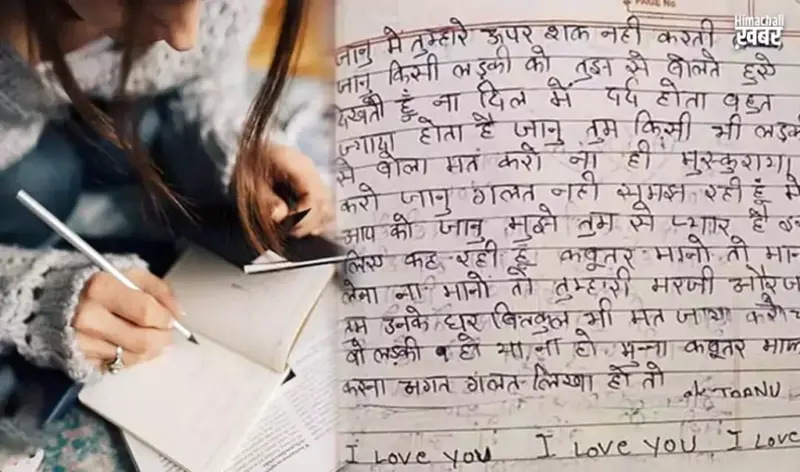 PAGE No
Himachali
ख़बर
जानु मे तुम्हारे ऊपर शक नही करती
जानु किसी लड़की को तुझ से बोलते हुऐ
देखती हूँ ना दिल में दर्द होता बहुत
ज्याया होता है जानु तुम किसी भी लड़की
से बोला मत करो ना ही मुस्कुराया
करो जानु गलत नही समझ रही हूँ मे
आप को जानु मुझे तुम से प्यार है
लिए कह रही हूँ कबूतर मानो तो मान
लेना ना मानो तो तुम्हारी मरजी और
तुम उनके घर बिलकुल भी मत जाया करो
वो लड़की हो या ना हो मुन्ना कबूतर माफ
करना अगत गलत लिखा हो तो
I Love you I Love you I Love